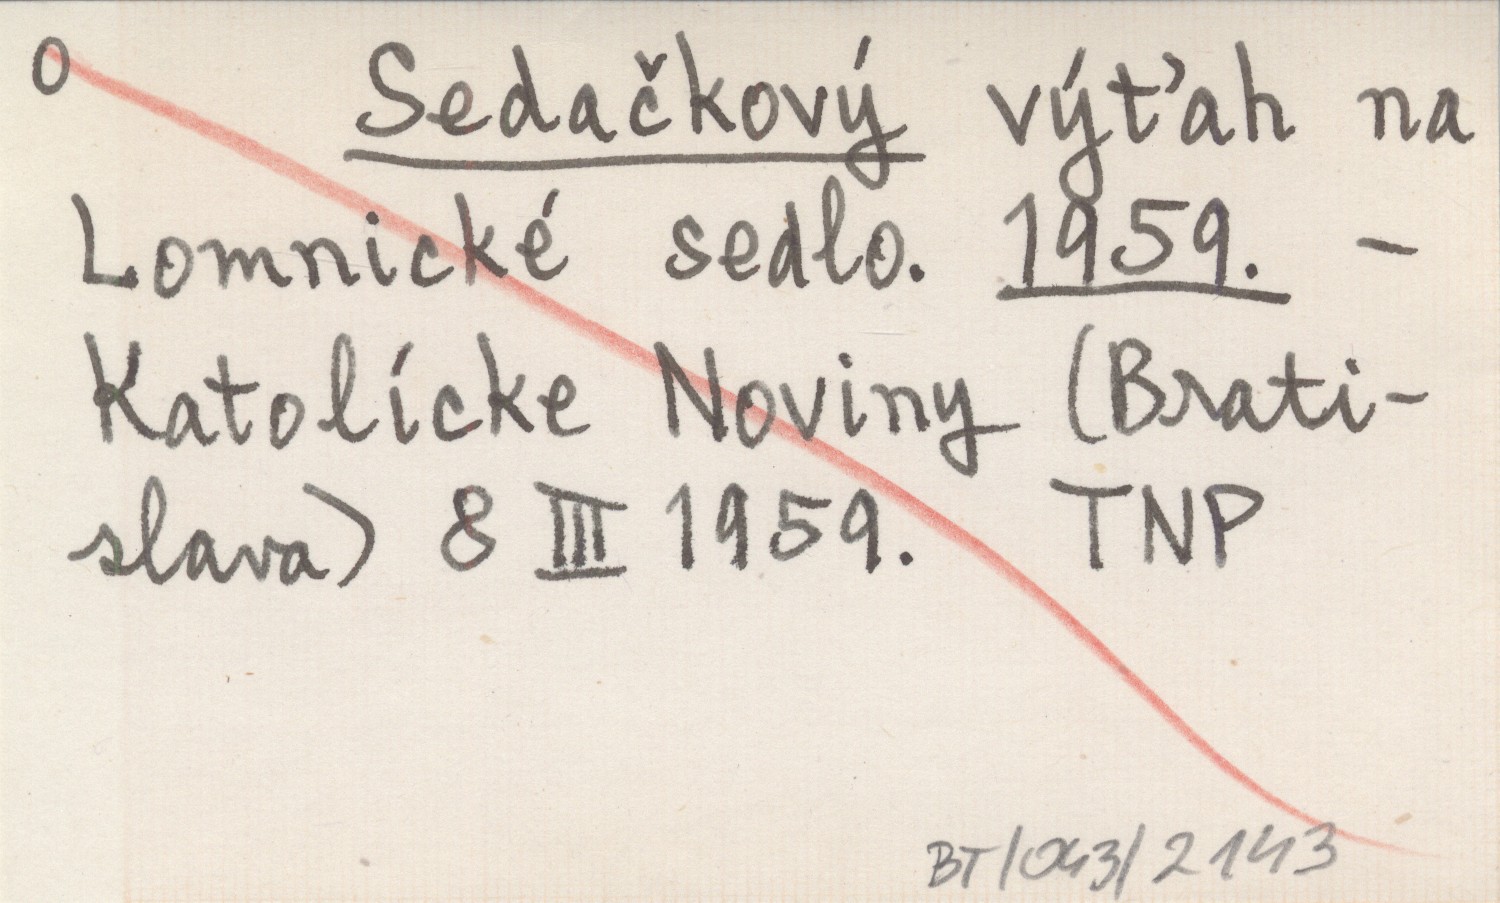 o Sedačkový výťah na
Lomnické sedlo. 1959. –
Katolícke Noviny (Brati-
slava) 8 III 1959. TNP
BT/043/2143